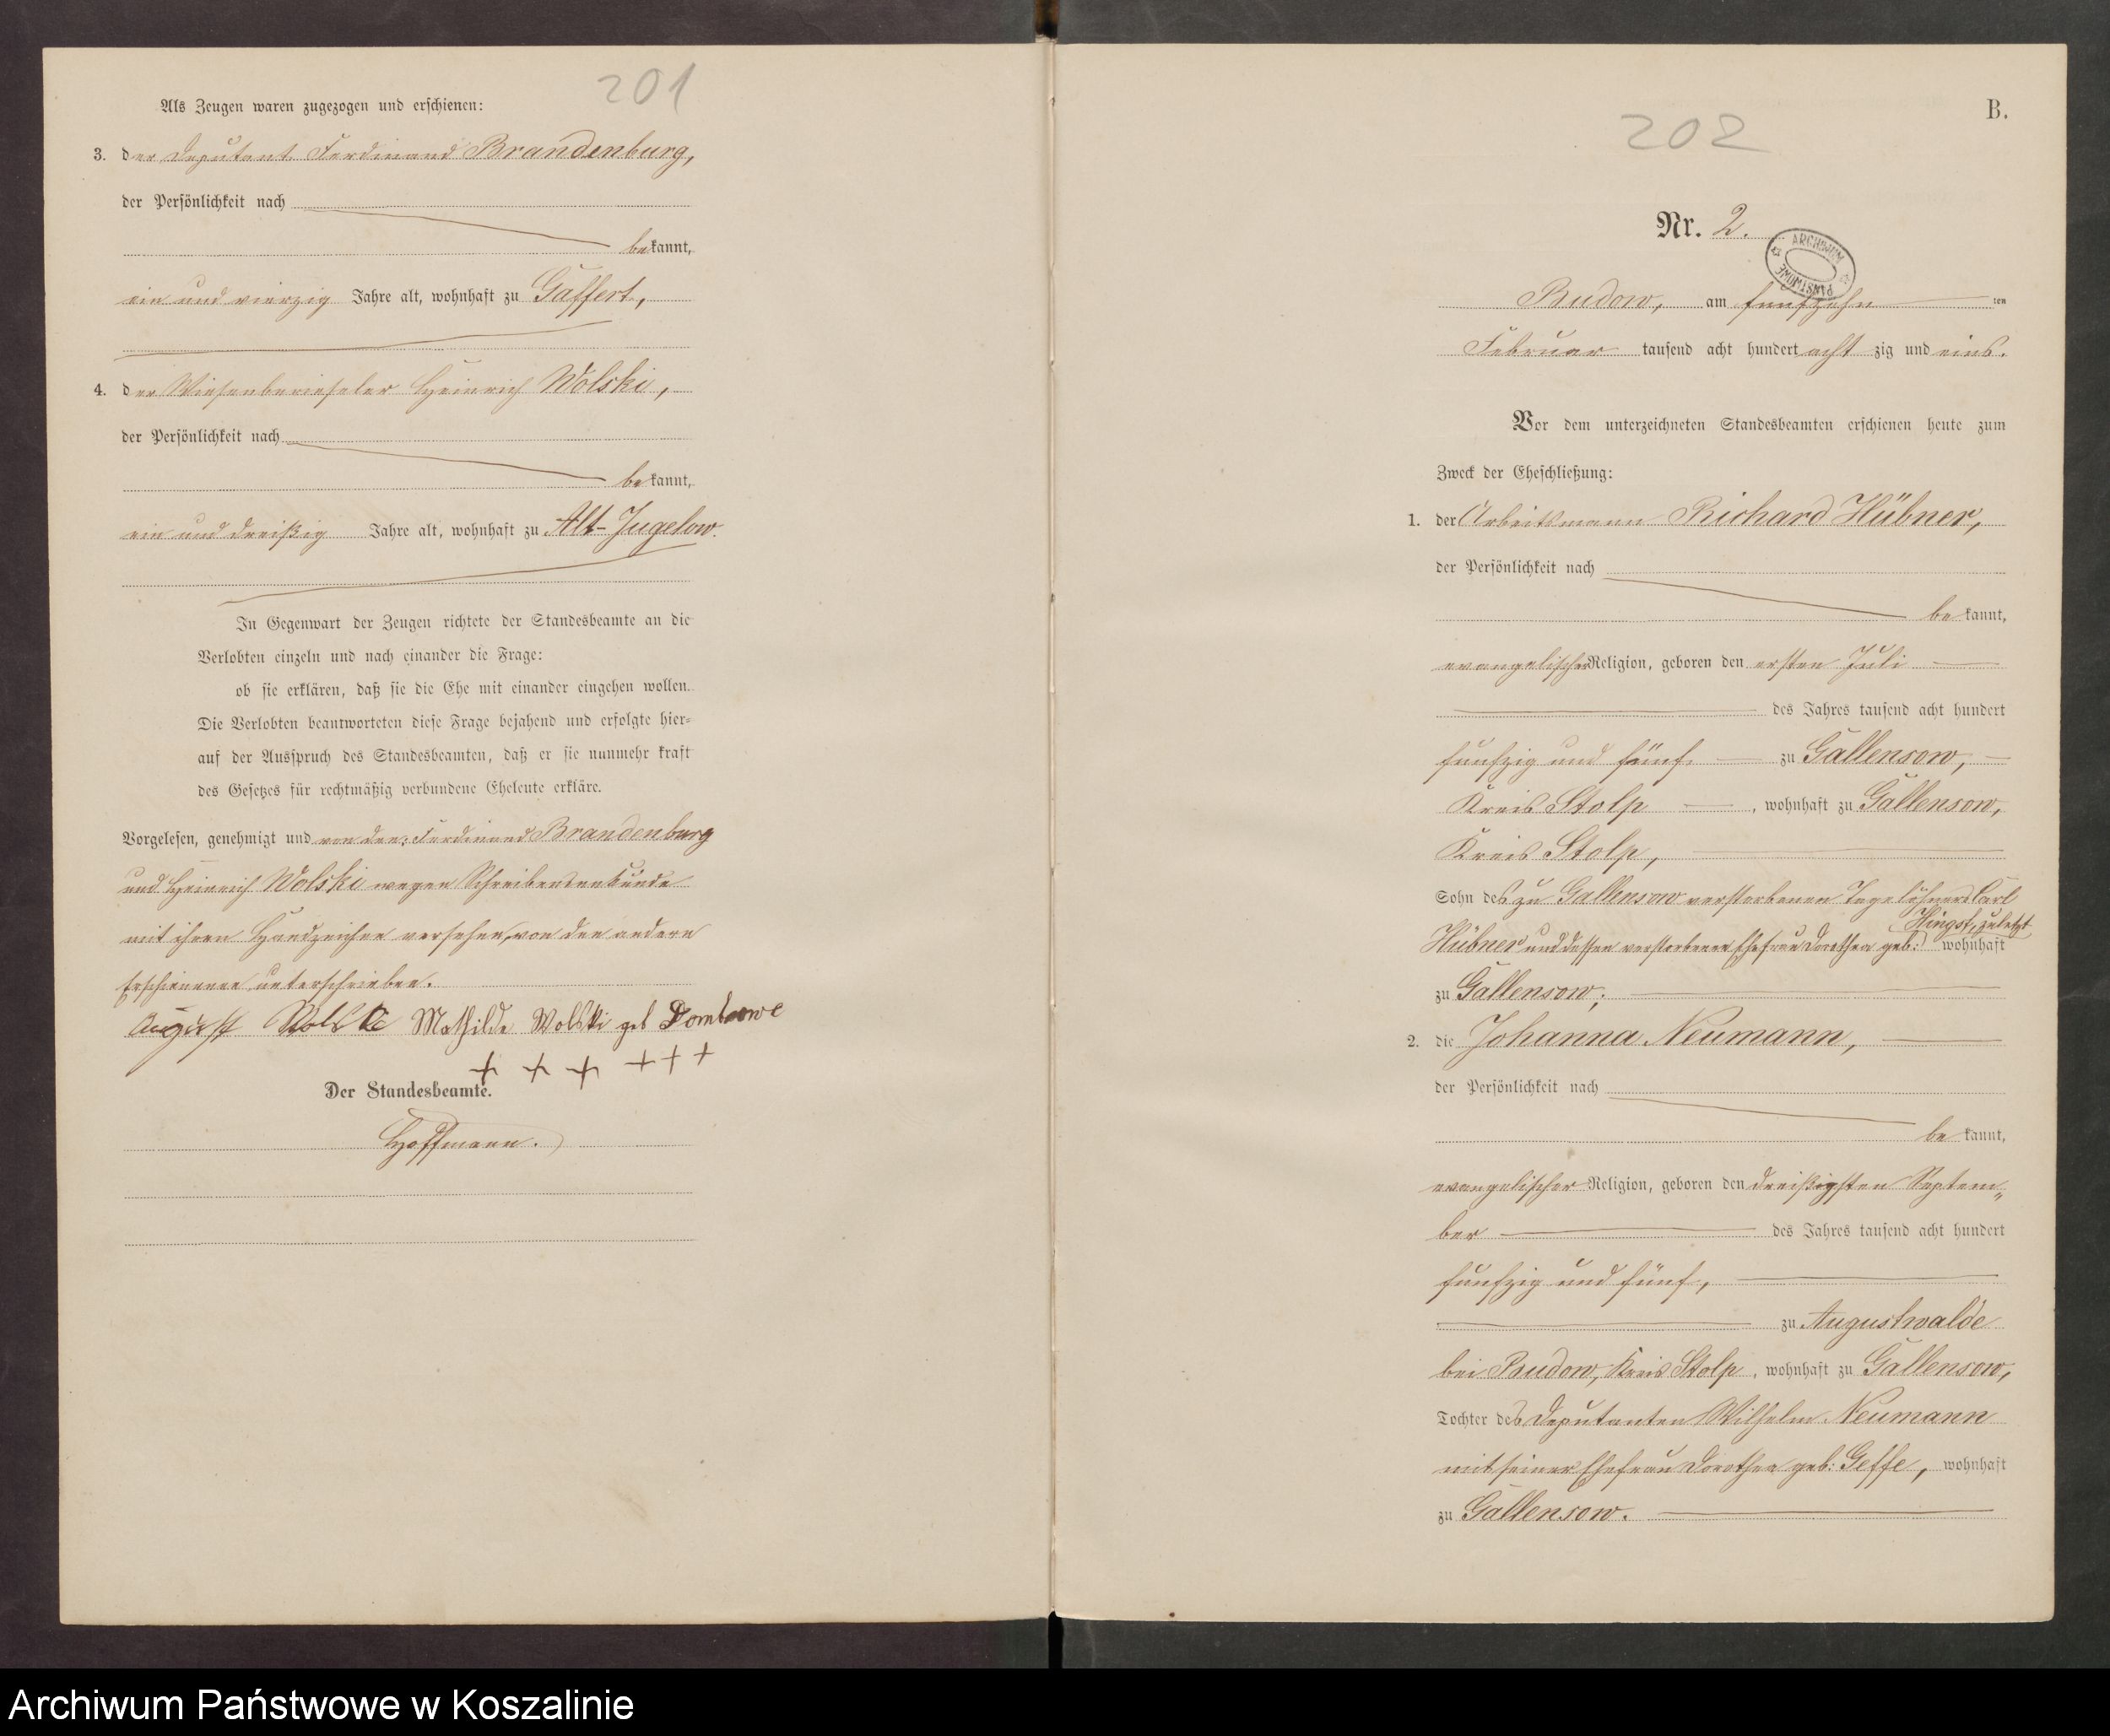 201
Als Zeugen waren zugezogen und erschienen:
3. der Deputant Ferdinand Brandenburg,
der Persönlichkeit nach
bekannt,
ein und vierzig Jahre alt, wohnhaft zu Gaffert,
4. der Wiesenberieseler Heinrich Wolski,
der Persönlichkeit nach
bekannt,
ein und dreißig Jahre alt, wohnhaft zu Alt-Jugelow.
In Gegenwart der Zeugen richtete der Standesbeamte an die
Verlobten einzeln und nach einander die Frage:
ob sie erklären, daß sie die Ehe mit einander eingehen wollen.
Die Verlobten beantworteten diese Frage bejahend und erfolgte hier-
auf der Ausspruch des Standesbeamten, daß er sie nunmehr kraft
des Gesetzes für rechtmäßig verbundene Eheleute erkläre.
Vorgelesen, genehmigt und von den: Ferdinand Brandenburg
und Heinrich Wolski wegen Schreibensunkunde
mit ihren Handzeichen versehen, von den andern
Erschienenen unterschrieben.
August Wolski Mathilde Wolski geb
+ + + + + +
Der Standesbeamte.
Hoffmann.
202
B.
Nr. 2.
ARCHIWUM PAŃSTWOWE
Budow, am funfzehn ten
Februar tausend acht hundert acht zig und eins.
Vor dem unterzeichneten Standesbeamten erschienen heute zum
Zweck der Eheschließung:
1. der Arbeitsmann Richard Hübner,
der Persönlichkeit nach
bekannt,
evangelischer Religion, geboren den ersten Juli
des Jahres tausend acht hundert
funfzig und fünf zu Gallensow,
Kreis Stolp, wohnhaft zu Gallensow,
Kreis Stolp,
Sohn des zu Gallensow verstorbenen Tagelöhners Carl
Hübner und dessen verstorbenen Ehefrau Dorothea geb: Hingst, zuletzt wohnhaft
zu Gallensow;
2. die Johanna Neumann,
der Persönlichkeit nach
bekannt,
evangelischer Religion, geboren den dreißigsten Septem„
ber des Jahres tausend acht hundert
funfzig und fünf,
zu Augustwalde
bei Budow, Kreis Stolp, wohnhaft zu Gallensow,
Tochter des Deputanten Wilhelm Neumann
mit seiner Ehefrau Dorothea geb: Geffe, wohnhaft
zu Gallensow.
Archiwum Państwowe w Koszalinie